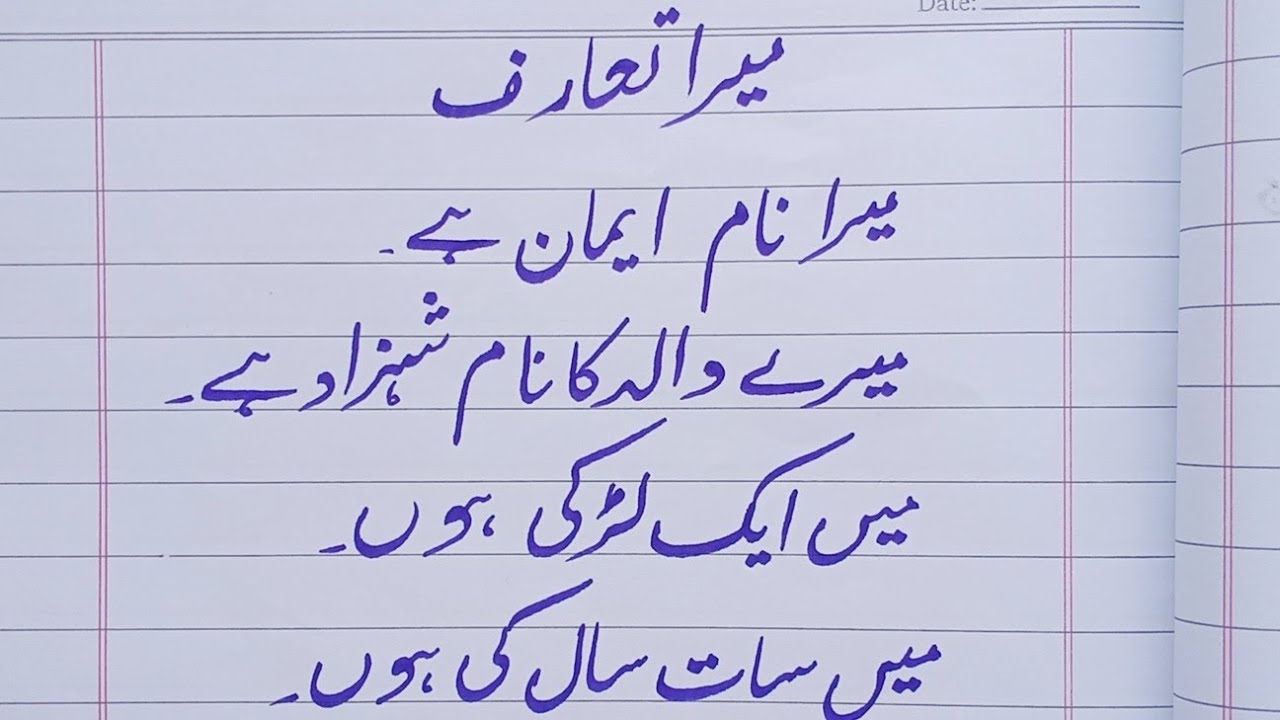 Date:
میرا تعارف
میرا نام ایمان ہے۔
میرے والد کا نام شہزاد ہے۔
میں ایک لڑکی ہوں۔
میں سات سال کی ہوں۔